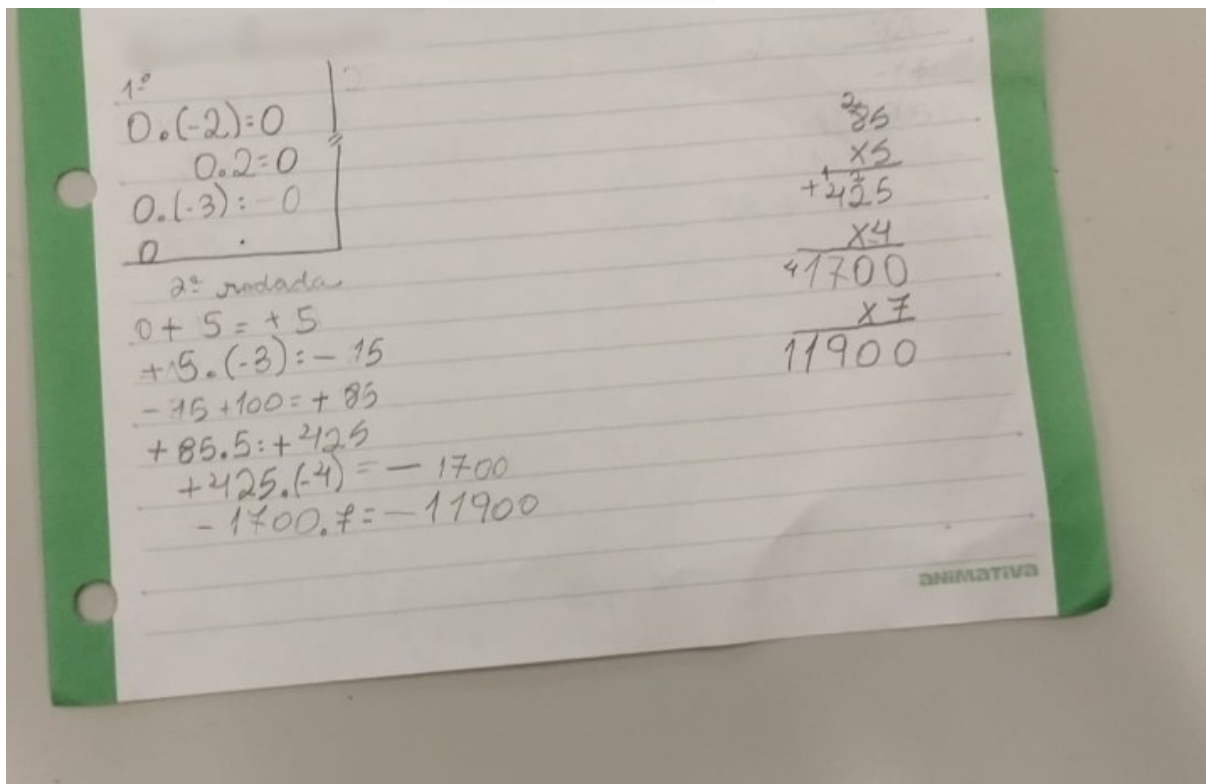 1º
0.(-2)=0
0.2=0
0.(-3)=-0
0 .
2ª rodada
0+ 5 = + 5
+5.(-3)=- 15
- 15 +100=+ 85
+85.5=+425
+425.(-4)=- 1700
- 1700.7=-11900
2
85
x5
+425
x4
1700
x7
11900
animativa